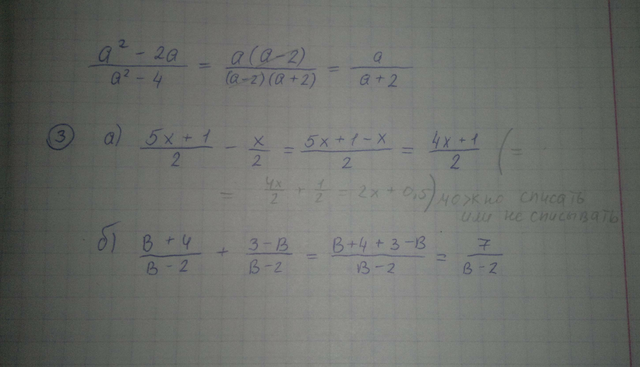 a² - 2a / a² - 4 = a(a-2) / (a-2)(a+2) = a / a+2
3 а) 5x+1 / 2 - x / 2 = 5x+1-x / 2 = 4x+1 / 2 (=
= 4x / 2 + 1 / 2 = 2x + 0,5) можно списать
или не списывать
б) в+4 / в-2 + 3-в / в-2 = в+4+3-в / в-2 = 7 / в-2